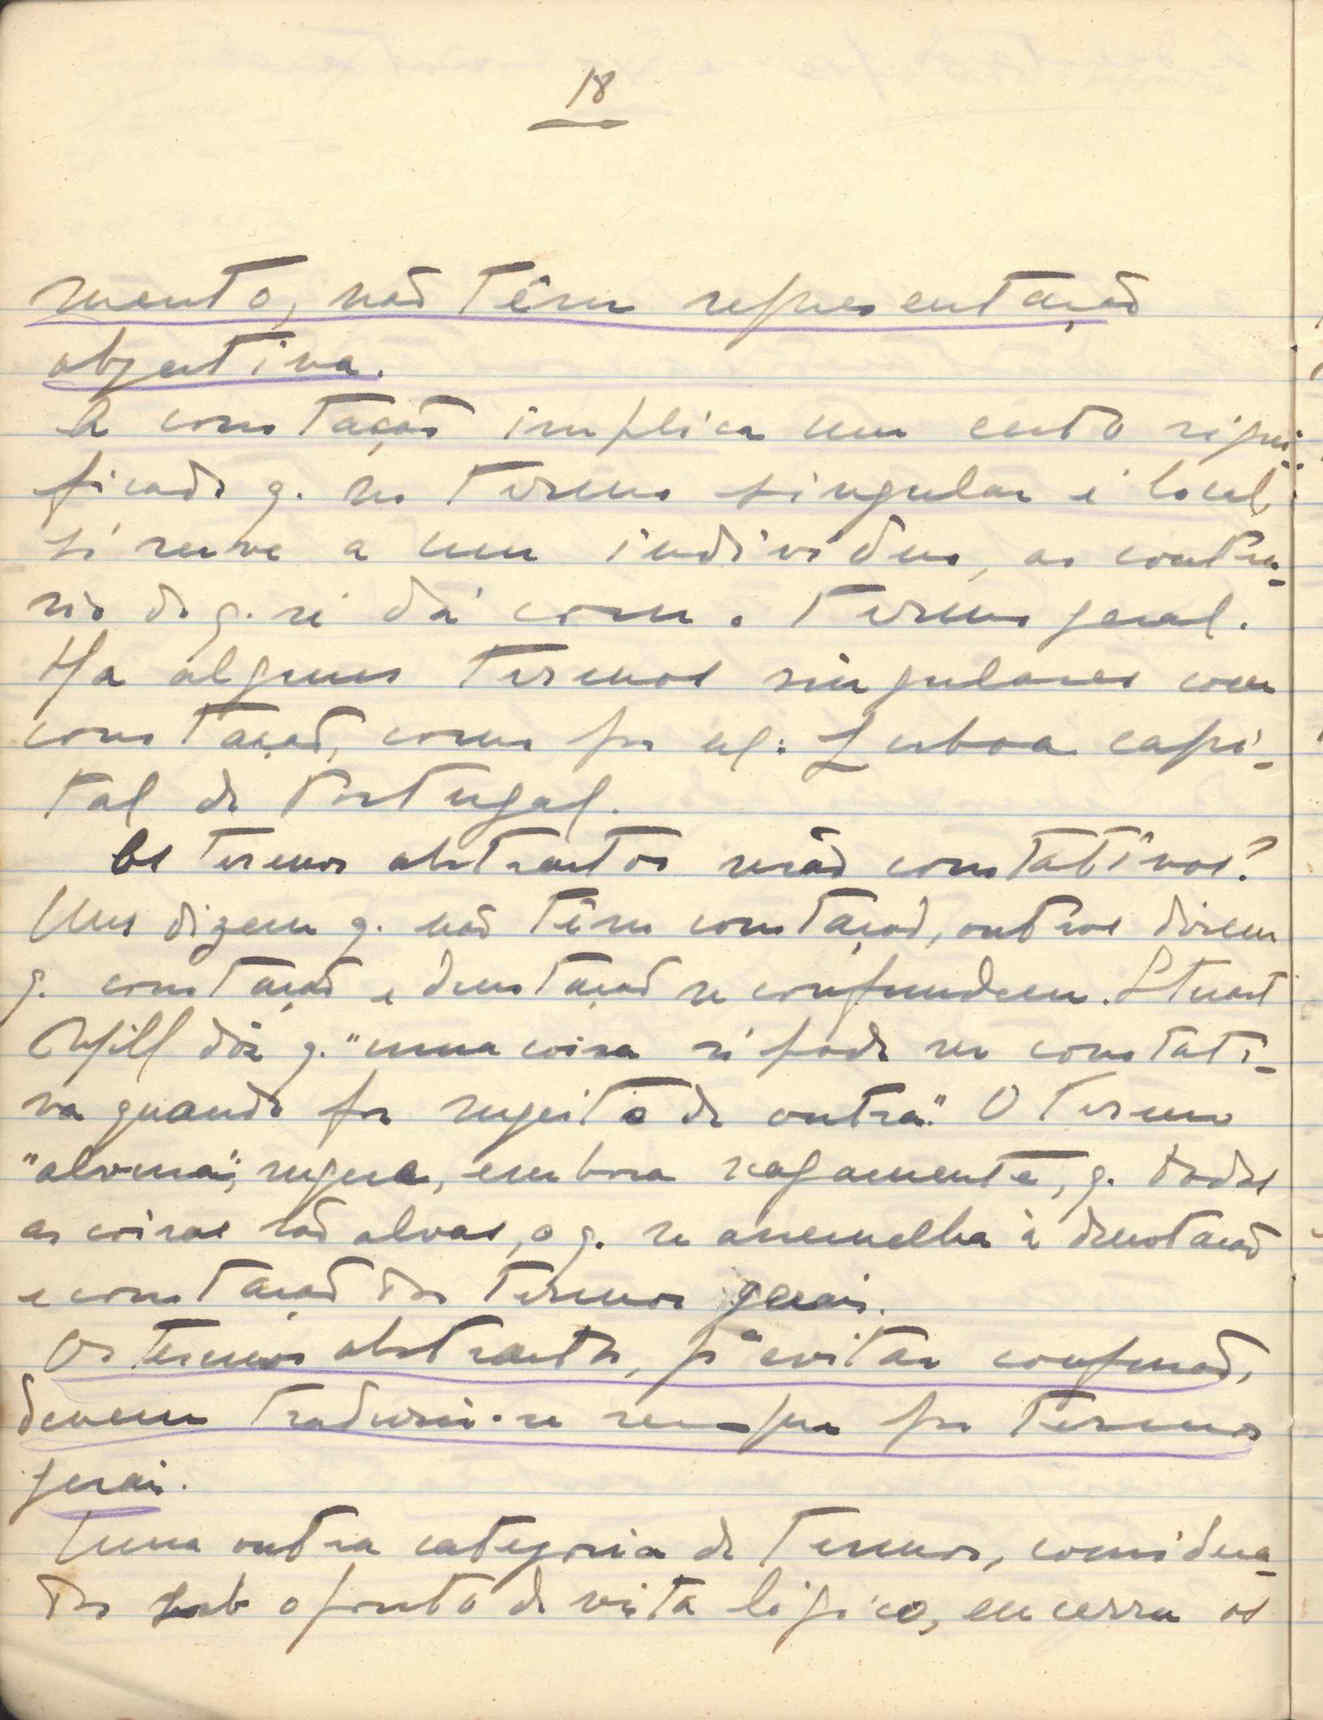 18
mento, não têm representação
objectiva.
A conotação implica um certo signi-
ficado q. no termo singular é local
só serve a um individuo, ao contra-
rio do q. se dá com o termo geral.
Ha alguns termos singulares com
conotação, como por ex: Lisboa capi-
tal de Portugal.
Os termos abstractos serão conotativos?
Uns dizem q. não têm conotação, outros dizem
q. conotação e denotação se confundem. Stuart
Mill diz q. "uma coisa só pode ser conotati-
va quando for sujeito de outra". O termo
"alvura", sugere, embora vagamente, q. todas
as coisas são alvas, o q. se assemelha à denotação
e conotação dos termos gerais.
Os termos abstractos, pª evitar confusão,
devem traduzir-se sempre por termos
gerais.
Uma outra categoria de termos, considera-
dos sob o ponto de vista lógico, encerra os